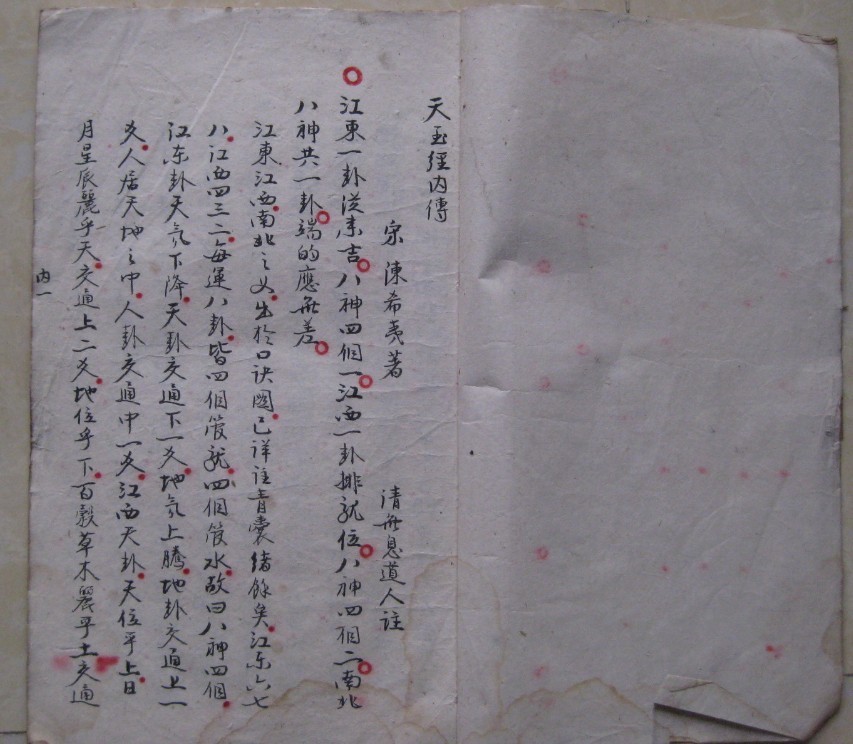 天玉經内傳
宗 陳希夷著 清無息道人註
江東一卦從來吉八神四個一江西一卦排龍位八神四個二南北
八神共一卦端的應無差
江東江西南北之义出於口诀圖已详註青囊绪餘矣江东六七
八江西四三二每運八卦皆四個管龍四個管水故曰八神四個
江东卦天氣下降天卦交通下一爻地氣上騰地卦交通上一
爻人居天地之中人卦交通中一爻江西天卦天位乎上日
月星辰麗乎天交通上二爻地位乎下百榖草木麗乎土交通
内一